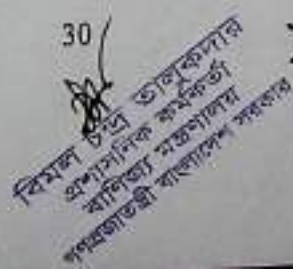 30
বিমল চন্দ্র তালুকদার
প্রশাসনিক কর্মকর্তা
বাণিজ্য মন্ত্রণালয়
গণপ্রজাতন্ত্রী বাংলাদেশ সরকার